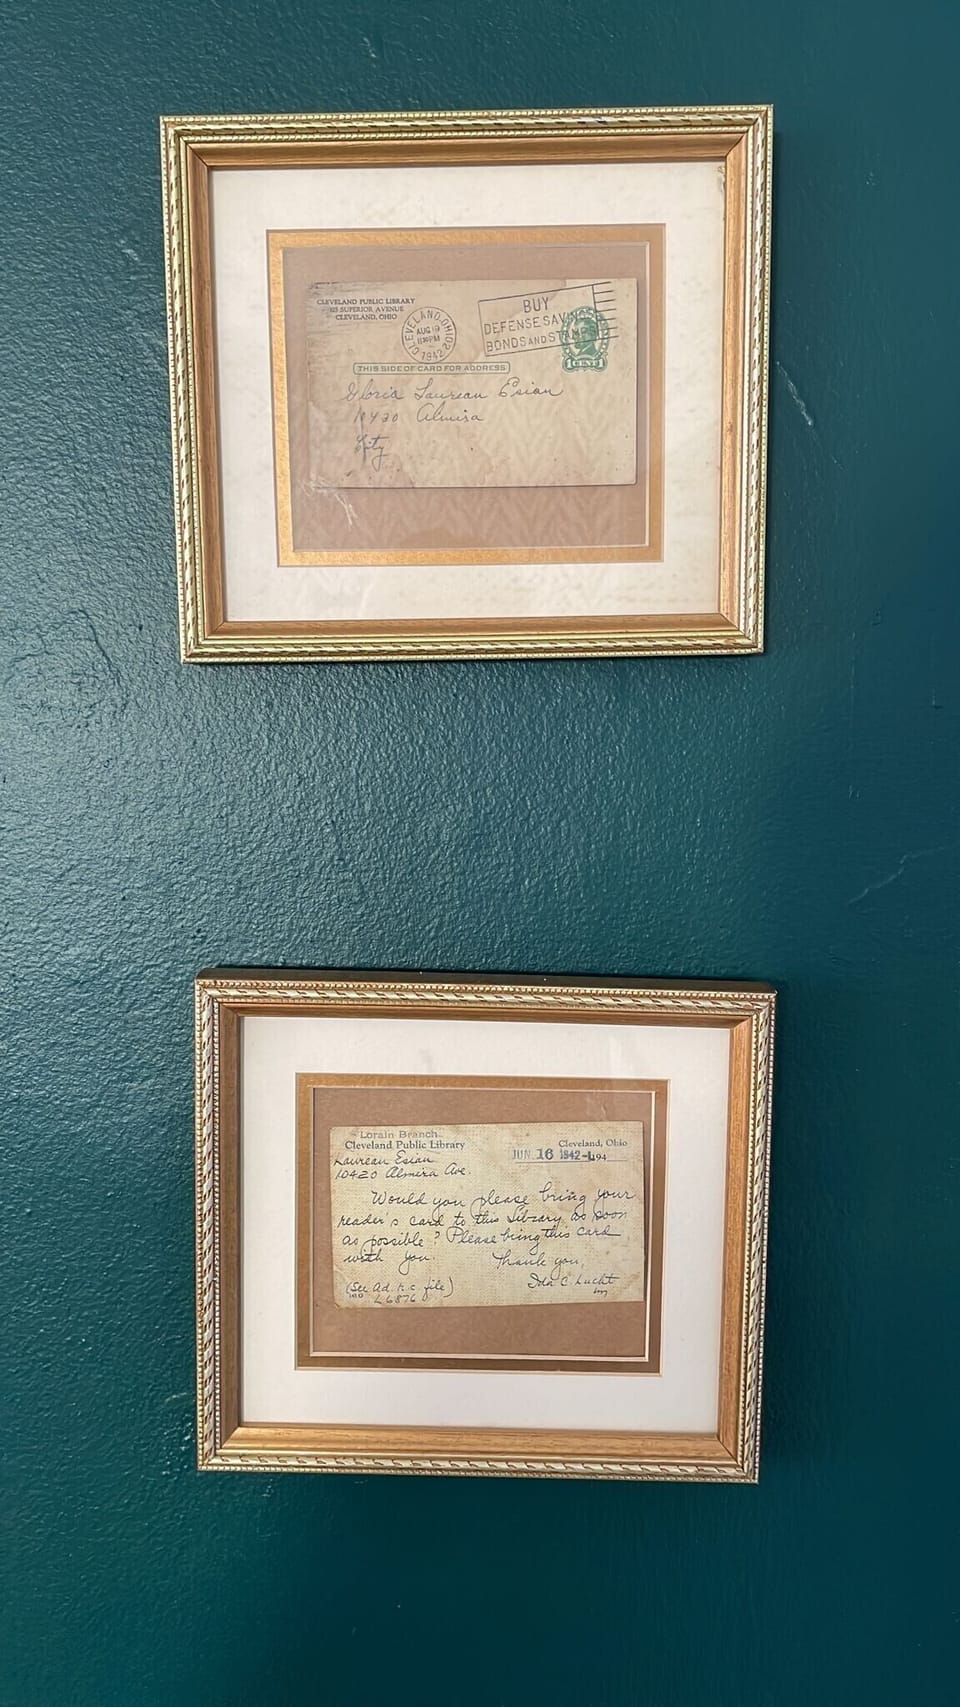 CLEVELAND PUBLIC LIBRARY
325 SUPERIOR AVENUE
CLEVELAND, OHIO
CLEVELAND, OHIO
AUG 19
1942
BUY
DEFENSE SAVINGS
BONDS AND STAMPS
THIS SIDE OF CARD FOR ADDRESS
Gloria Laurean Esian
10420 Almira
City
Lorain Branch
Cleveland Public Library
Cleveland, Ohio
JUN 16 1942 194
Laurean Esian
10420 Almira Ave.
Would you please bring your
reader's card to this Library as soon
as possible? Please bring this card
with you Thank you,
Ida C. Lucht
(See Ad. r.c. file)
L6876